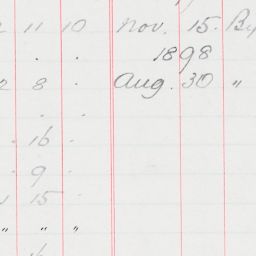 11 10 Nov. 15. By
1898
2 8 . Aug. 30 "
16 .
9 .
15
" " "
16